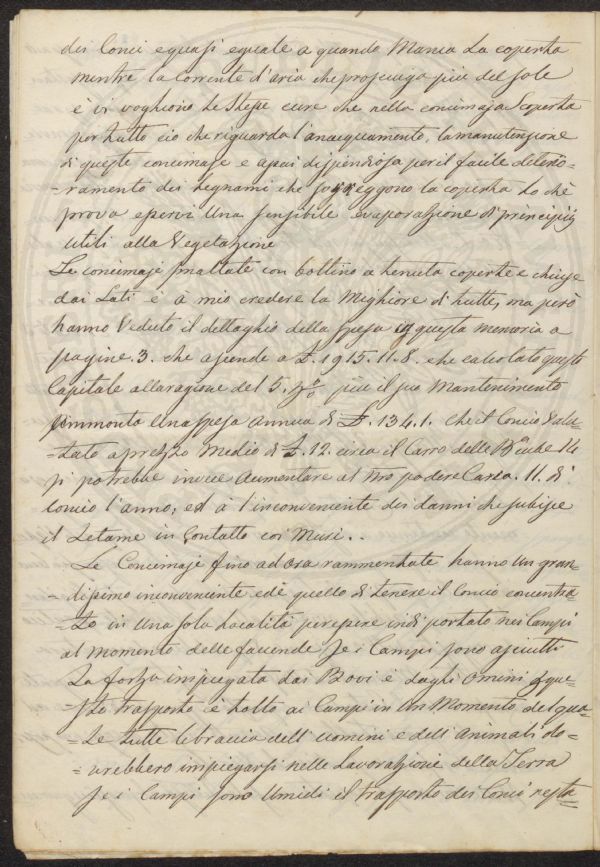 dei Conci e quasi eguale a quando Manca La coperta
mentre la Corrente d'aria che prosciuga piu del sole
è vi vogliono Le Stesse cure che nella concimaja Scoperta
per tutto ciò che riguarda l'anacquamento, la manutenzione
di queste concimaje e assai dispendiosa per il facile deterio=
=ramento dei Legnami che sorreggono la coperta Lo chè
prova esservi Una sensibile evaporazione di principij
utili alla Vegetazione
Le concimaje smaltate con bottino a tenuta coperte e chiuse
dai Lati e à mio credere la Migliore di tutte, ma però
hanno Veduto il dettaglio della spesa in questa memoria a
pagine. 3. che ascende a £. 1915.11.8. che calcolato questo
Capitale alla ragione del 5. p% piu il suo Mantenimento
ammonta Una spesa annua di £. 134.1. che il Concio Valu=
=tato a prezzo Medio di £. 12. circa il Carro delle
si potrebbe invece Aumentare al suo podere Carra. 11. di
concio l'anno, ed à l'inconveniente dei danni che subisce
il Letame in Contatto coi Muri..
Le Concimaje fino ad ora rammentate hanno Un gran=
=dissimo inconveniente ed è quello di tenere il Concio concentra
=to in Una sola Località per essere indi portato nei Campi
al Momento delle faccende Se i Campi sono asciutti
La forza impiegata dai Bovi e dagli Omini que=
=sto trasporto è tolto ai Campi in Un Momento del qua=
=Le tutte le braccia dell'uomini e dell'Animali do=
=vrebbero impiegarsi nelle Lavorazione della Terra
Se i Campi sono Umidi il trasporto dei Conci resta=